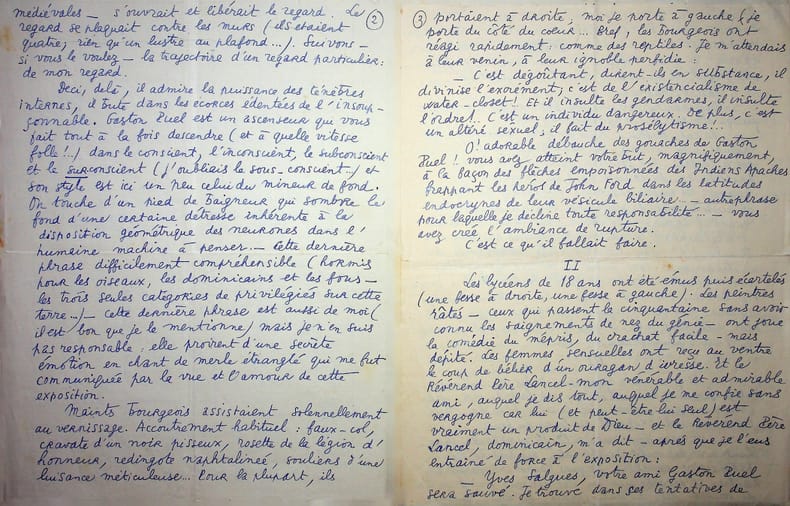 médiévales — s'ouvrait et libérait le regard. Le
regard se plaquait contre les murs (ils étaient
quatre, rien qu'un lustre au plafond...). Suivons —
si vous le voulez — la trajectoire d'un regard particulier:
de mon regard.
Deci, delà, il admire la puissance des ténèbres
internes, il bute dans les écorces édentées de l'insoup-
çonnable. Gaston Puel est un ascenseur qui vous
fait tout à la fois descendre (et à quelle vitesse
folle!..) dans le conscient, l'inconscient, le subconscient
et le surconscient (j'oubliais le sous-conscient.) et
son style est ici un peu celui du mineur de fond.
On touche d'un pied de baigneur qui sombre le
fond d'une certaine détresse inhérente à la
disposition géométrique des neurones dans l'
humaine machine à penser. — Cette dernière
phrase difficilement compréhensible (hormis
pour les oiseaux, les dominicains et les fous —
les trois seules catégories de privilégiés sur cette
terre...) — cette dernière phrase est aussi de moi (
il est bon que je le mentionne) mais je n'en suis
pas responsable: elle provient d'une secrète
émotion en chant de merle étranglé qui me fut
communiquée par la vue et l'amour de cette
exposition.
Maints bourgeois assistaient solennellement
au vernissage. Accoutrement habituel: faux-col,
cravate d'un noir pisseux, rosette de la légion d'
honneur, redingote naphtalinée, souliers d'une
luisance méticuleuse... Pour la plupart, ils
2
3
portaient à droite, moi je porte à gauche (je
porte du côté du cœur... Bref, les bourgeois ont
réagi rapidement: comme des reptiles. Je m'attendais
à leur venin, à leur ignoble perfidie:
— C'est dégoûtant, dirent-ils en substance, il
divinise l'excrément, c'est de l'existencialisme de
water-closet! Et il insulte les gendarmes, il insulte
l'ordre!.. C'est un individu dangereux. De plus, c'est
un altéré sexuel, il fait du prosélytisme!..
O! adorable débauche des gouaches de Gaston
Puel! vous avez atteint votre but, magnifiquement,
à la façon des flèches empoisonnées des Indiens Apaches
frappant les héros de John Ford dans les latitudes
endocrynes de leur vésicule biliaire — autre phrase
pour laquelle je décline toute responsabilité... — vous
avez créé l'ambiance de rupture.
C'est ce qu'il fallait faire.
II
Les lycéens de 18 ans ont été émus puis écartelés
(une fesse à droite, une fesse à gauche). Les peintres
ratés — ceux qui passent la cinquantaine sans avoir
connu les saignements de nez du génie — ont joué
la comédie du mépris, du crachat facile — mais
dépité. Les femmes sensuelles ont reçu au ventre
le coup de bélier d'un ouragan d'ivresse. Et le
Révérend Père Lancel — mon vénérable et admirable
ami, auquel je dis tout, auquel je me confie sans
vergogne car lui (et peut-être lui seul) est
vraiment un produit de Dieu — et le Révérend Père
Lancel, dominicain, m'a dit — après que je l'eus
entraîné de force à l'exposition:
— Yves Salgues, votre ami Gaston Puel
sera sauvé. Je trouve dans ses tentatives de